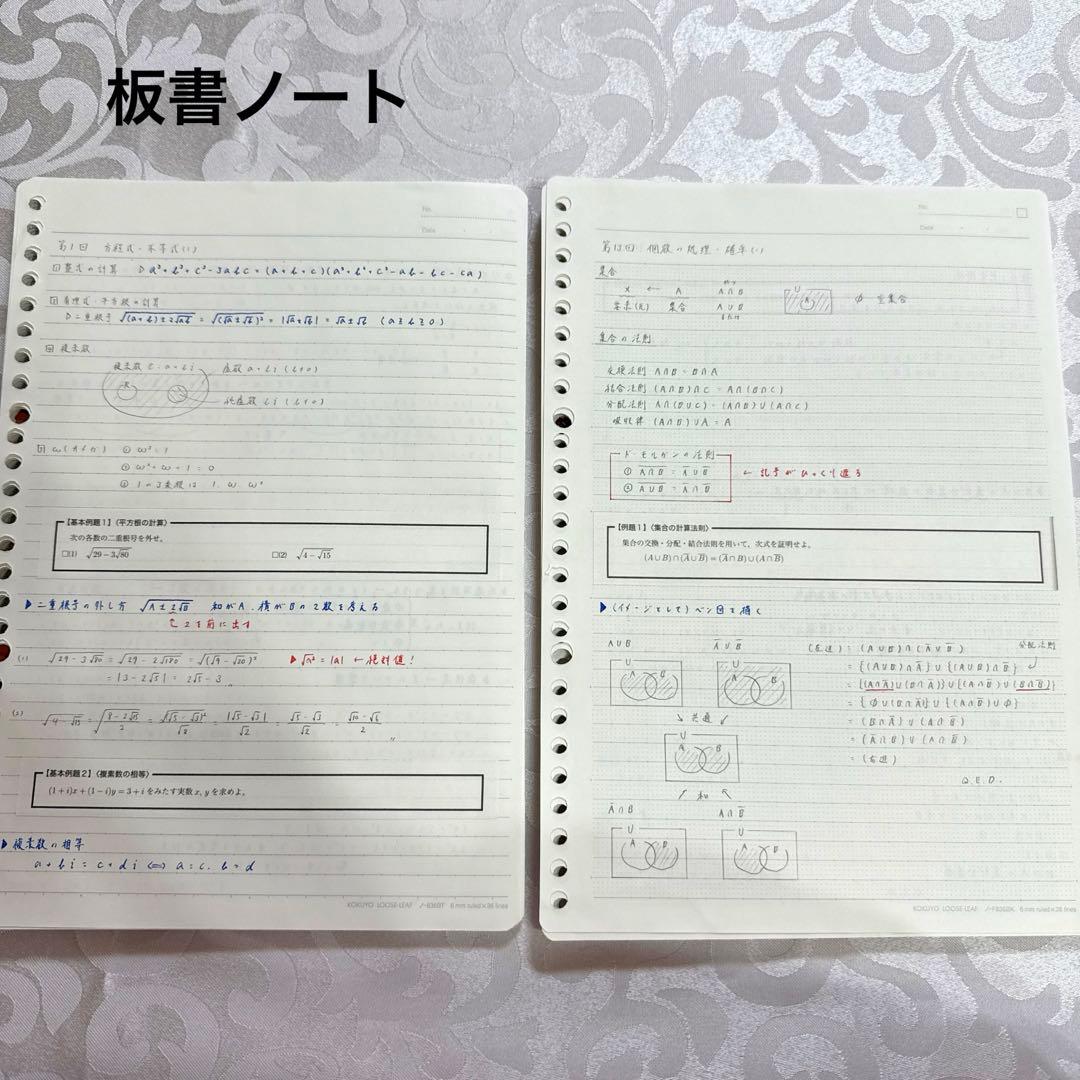 板書ノート
No.
Date
第1回 方程式・不等式(1)
① 整式の計算 ▷ a³+b³+c³-3abc=(a+b+c)(a²+b²+c²-ab-bc-ca)
有理式・平方根の計算
▷ 二重根号 √((a+b)±2√ab) = √((√a±√b)²) = |√a±√b| = √a±√b (a≧b≧0)
複素数
複素数 C: a+bi 虚数 a+bi (b≠0)
R
純虚数 bi (b≠0)
ω(オメガ) ① ω³=1
② ω²+ω+1=0
③ 1の3乗根は 1, ω, ω²
【基本例題1】〈平方根の計算〉
次の各数の二重根号を外せ。
□(1) √(29-3√80) □(2) √(4-√15)
▶ 二重根号の外し方 √(A±2√B) 和がA、積がBの2数を考える
2を前に出す
(1) √(29-3√80) = √(29-2√180) = √((√9-√20)²) ▶ √a² = |a| ← 絶対値!
= |3-2√5| = 2√5-3
(2) √(4-√15) = √((8-2√15)/2) = √((√5-√3)²)/√2 = |√5-√3|/√2 = (√5-√3)/√2 = (√10-√6)/2
【基本例題2】〈複素数の相等〉
(1+i)x+(1-i)y=3+i をみたす実数 x, y を求めよ。
▶ 複素数の相等
a+bi = c+di ⇔ a=c, b=d
KOKUYO LOOSE-LEAF ノ-836BT 6 mm ruled×36 lines
No.
Date
第13回 : 個数の処理・確率(1)
集合
x ← A A∩B U A φ 空集合
要素(元) 集合 A∪B
または
集合の法則
交換法則 A∩B=B∩A
結合法則 (A∩B)∩C=A∩(B∩C)
分配法則 A∩(B∪C)=(A∩B)∪(A∩C)
吸収律 (A∩B)∪A=A
ド・モルガンの法則
① A̅∩̅B̅ = A̅∪B̅ ← 記号がひっくり返る
② A̅∪̅B̅ = A̅∩B̅
【例題1】〈集合の計算法則〉
集合の交換・分配・結合法則を用いて、次式を証明せよ。
(A∪B)∩(A̅∪B̅)=(A̅∩B)∪(A∩B̅)
▶ (イメージとして) ベン図を描く
A∪B A̅∪B̅ (左辺)=(A∪B)∩(A̅∪B̅) 分配法則
U A B U A B ={(A∪B)∩A̅}∪{(A∪B)∩B̅}
={(A∩A̅)∪(B∩A̅)}∪{(A∩B̅)∪(B∩B̅)}
={φ∪(B∩A̅)}∪{(A∩B̅)∪φ}
共通 =(B∩A̅)∪(A∩B̅)
U A B =(A̅∩B)∪(A∩B̅)
=(右辺)
Q.E.D.
和
A̅∩B A∩B̅
U A B U A B
KOKUYO LOOSE-LEAF ノ-F836BK 6 mm ruled×36 lines